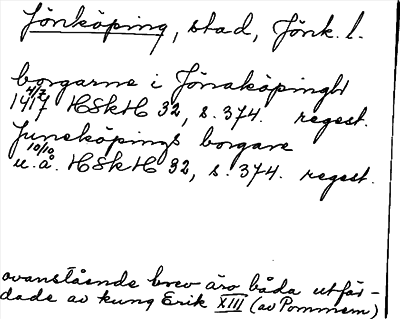 Jönköping, stad, Jönk. l.
borgarne i Jönaköpingh
4/7
1417 HSkH 32, s. 374. regest.
Juneköpings borgare
10/10
u.å. HSkH 32, s. 374. regest.
ovanstående brev äro båda utfär-
dade av kung Erik XIII (av Pommern)